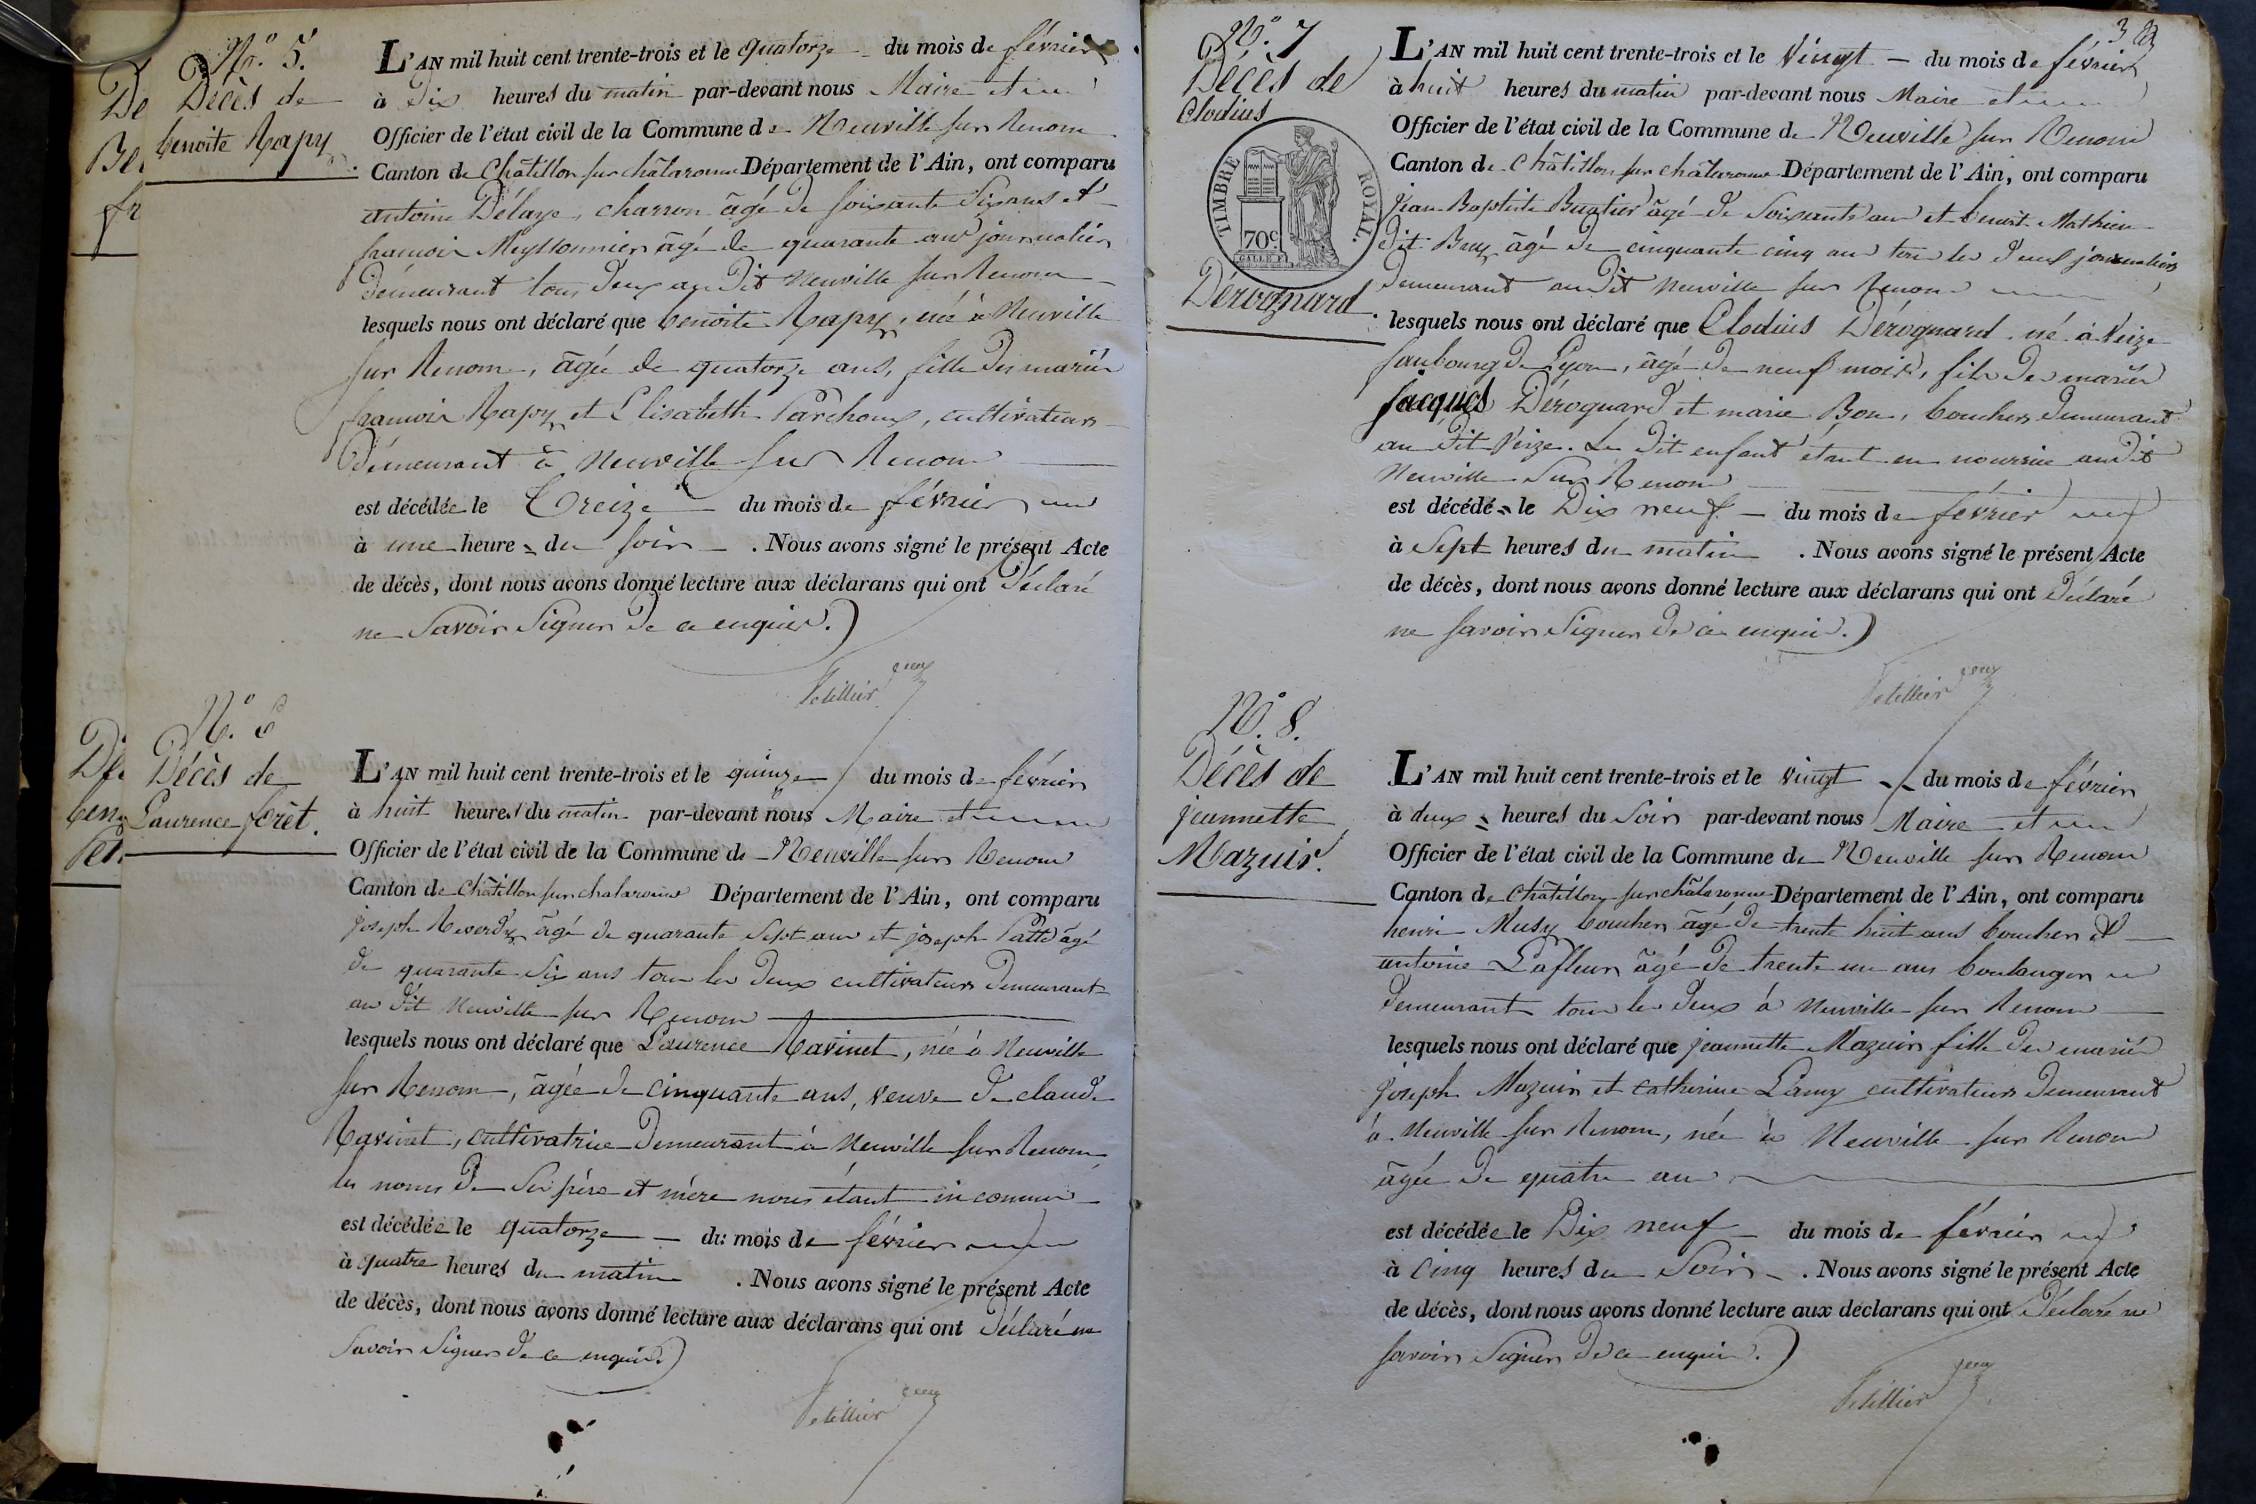 N.° 5.
Décès de
benoite Rapy
L'AN mil huit cent trente-trois et le quatorze du mois de février
à Dix heures du matin par-devant nous Maire et
Officier de l'état civil de la Commune de Neuville sur Renom
Canton de Châtillon sur chalaronne Département de l'Ain, ont comparu
antoine Délaye, charron âgé de soixante Six ans et
francois Meyllonnier âgé de quarante ans journalier
Demeurant tous deux au Dit Neuville sur Renom
lesquels nous ont déclaré que benoite Rapy, née à Neuville
sur Renom, âgée de quatorze ans, fille des mariés
francois Rapy et Elisabeth Parchoux, cultivateurs
Demeurant à Neuville sur Renom
est décédée le Treize du mois de février
à une heure du soir. Nous avons signé le présent Acte
de décès, dont nous avons donné lecture aux déclarans qui ont Déclaré
ne Savoir Signer de ce enquis.
N.° 6
Décès de
Laurence forêt.
L'AN mil huit cent trente-trois et le quinze du mois de février
à huit heures du matin par-devant nous Maire et
Officier de l'état civil de la Commune de Neuville sur Renom
Canton de Châtillon sur chalaronne Département de l'Ain, ont comparu
joseph Reverdy âgé de quarante Sept ans et joseph âgé
de quarante Six ans tous les deux cultivateurs Demeurant
au dit Neuville sur Renom
lesquels nous ont déclaré que Laurence Ravinet, née à Neuville
sur Renom, âgée de cinquante ans, veuve de claude
Ravinet, cultivatrice Demeurant à Neuville sur Renom
les noms de Ses père et mère nous étant inconnus
est décédée le quatorze du mois de février
à quatre heures du matin. Nous avons signé le présent Acte
de décès, dont nous avons donné lecture aux déclarans qui ont Déclaré ne
Savoir Signer de ce enquis.
N.° 7
Décès de
Clodius
TIMBRE ROYAL.
70c.
Derognard.
L'AN mil huit cent trente-trois et le Vingt du mois de février
à huit heures du matin par-devant nous Maire et
Officier de l'état civil de la Commune de Neuville sur Renom
Canton de Châtillon sur chalaronne Département de l'Ain, ont comparu
jean Baptiste âgé de Soixante ans et benoit Mathieu
dit âgé de cinquante cinq ans tous les deux journaliers
Demeurant au Dit Neuville sur Renom
lesquels nous ont déclaré que Clodius Dérognard né à Veize
faubourg de Lyon, âgé de neuf mois, fils des mariés
jacques Dérognard et marie Bon, bouchers Demeurant
au Dit Veize. Le Dit enfant étant en nourrice au Dit
Neuville Sur Renom
est décédé le Dix neuf du mois de février
à Sept heures du matin. Nous avons signé le présent Acte
de décès, dont nous avons donné lecture aux déclarans qui ont Déclaré
ne savoir Signer de ce enquis.
N.° 8.
Décès de
jeannette
Mazuir.
L'AN mil huit cent trente-trois et le vingt du mois de février
à deux heures du Soir par-devant nous Maire et
Officier de l'état civil de la Commune de Neuville sur Renom
Canton de Châtillon sur chalaronne Département de l'Ain, ont comparu
henri Musy boucher âgé de trente huit ans boucher et
antoine Lafleur âgé de trente un ans boulanger
Demeurant tous les deux à Neuville sur Renom
lesquels nous ont déclaré que jeannette Mazuir fille des mariés
joseph Mazuir et catherine Lamy cultivateurs Demeurant
à Neuville sur Renom, née à Neuville sur Renom
âgée de quatre ans
est décédée le Dix neuf du mois de février
à Cinq heures du Soir. Nous avons signé le présent Acte
de décès, dont nous avons donné lecture aux déclarans qui ont Déclaré ne
savoir Signer de ce enquis.